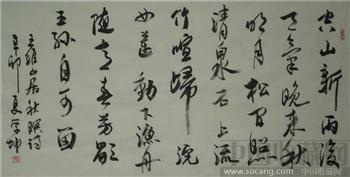 空山新雨後
天氣晚來秋
明月松间照
清泉石上流
竹喧歸浣
女蓮動下漁舟
隨意春芳歇
王孫自可留
王維山居秋暝詩
辛卯夏学坤
www.socang.com